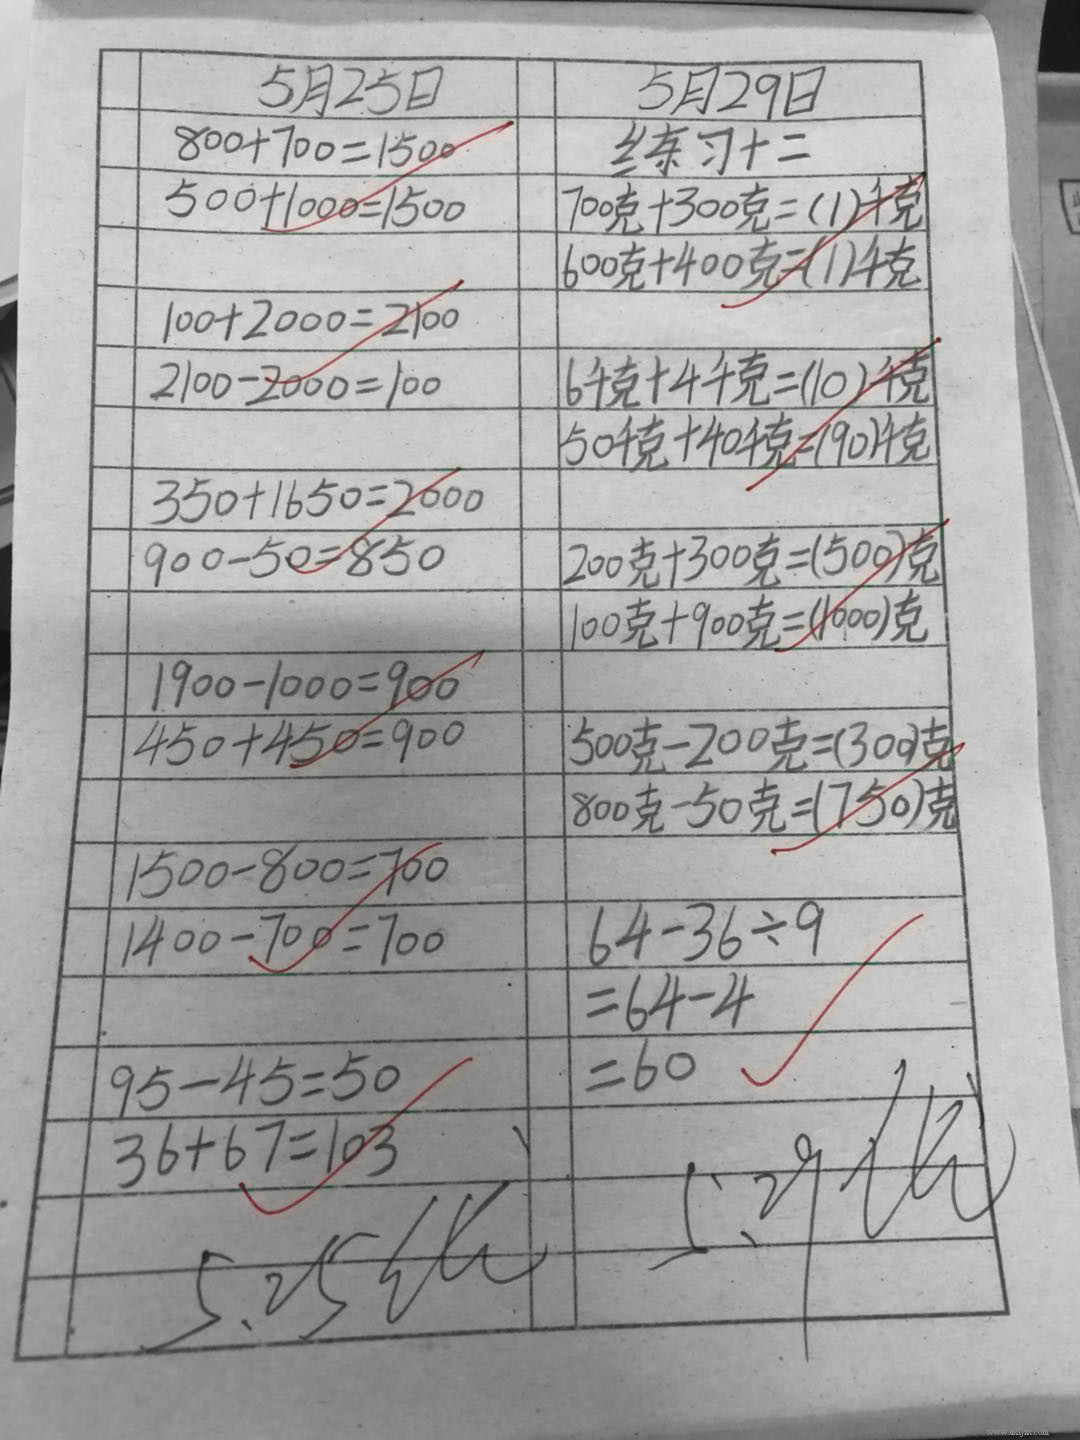 5月25日
800+700=1500
500+1000=1500
100+2000=2100
2100-2000=100
350+1650=2000
900-50=850
1900-1000=900
450+450=900
1500-800=700
1400-700=700
95-45=50
36+67=103
5.25 优
5月29日
练习十二
700克+300克=(1)千克
600克+400克=(1)千克
6千克+4千克=(10)千克
50千克+40千克=(90)千克
200克+300克=(500)克
100克+900克=(1000)克
500克-200克=(300)克
800克-50克=(750)克
64-36÷9
=64-4
=60
5.29 优